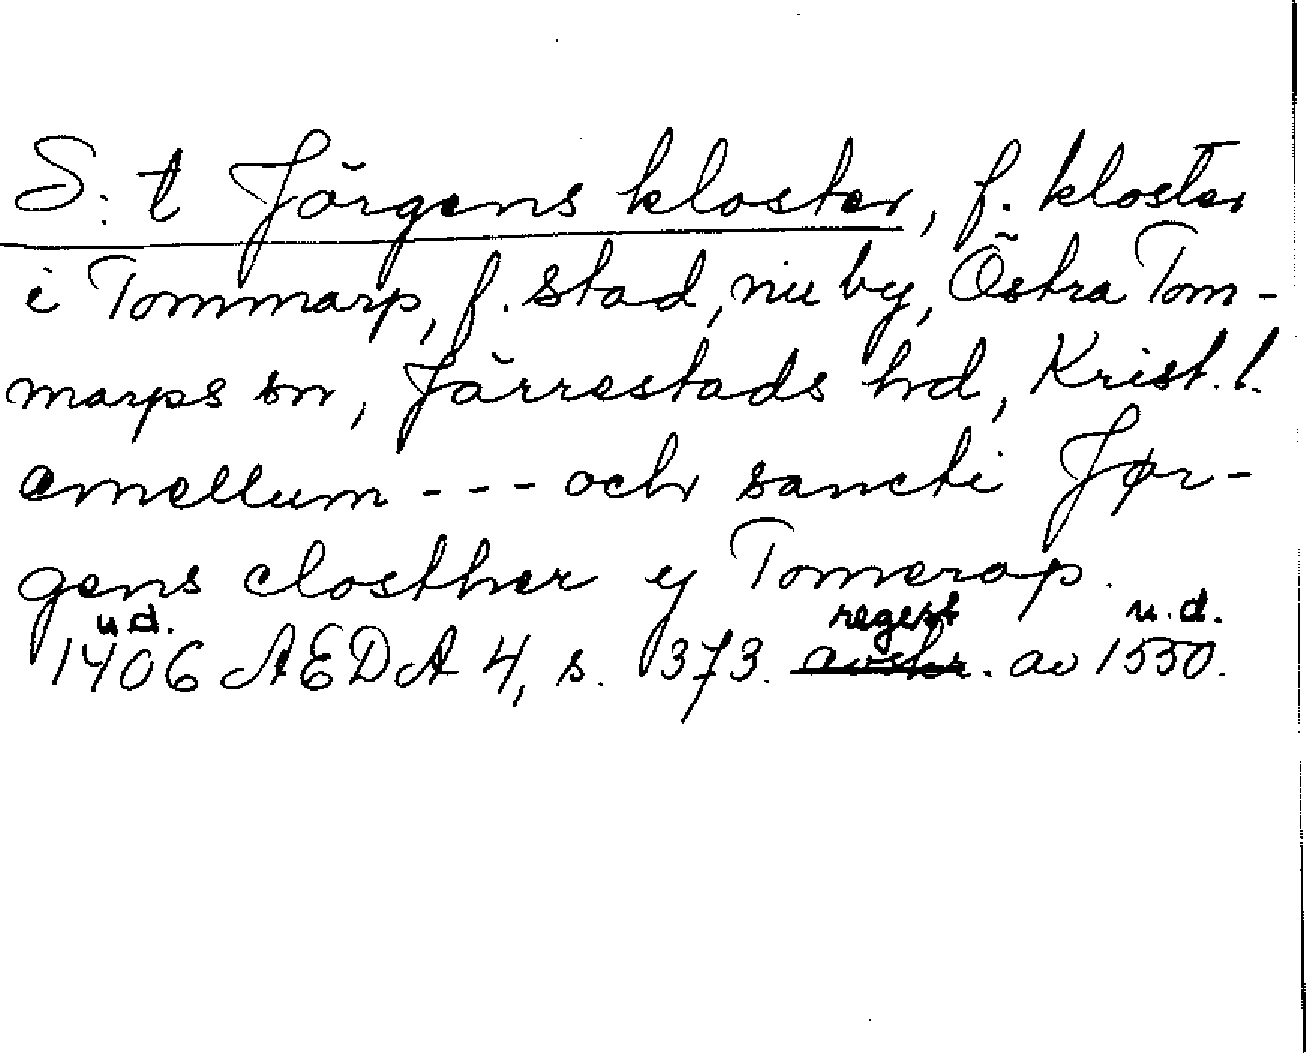 S:t Jörgens kloster, f. kloster
i Tommarp, f. stad, nu by, Östra Tom-
marps sn, Järrestads hd, Krist. l.
emellum - - - och sancti Jør-
gens closther y Tomerap.
u.d. regest u.d.
1406 AEDA 4, s. 373. avskr. av 1550.